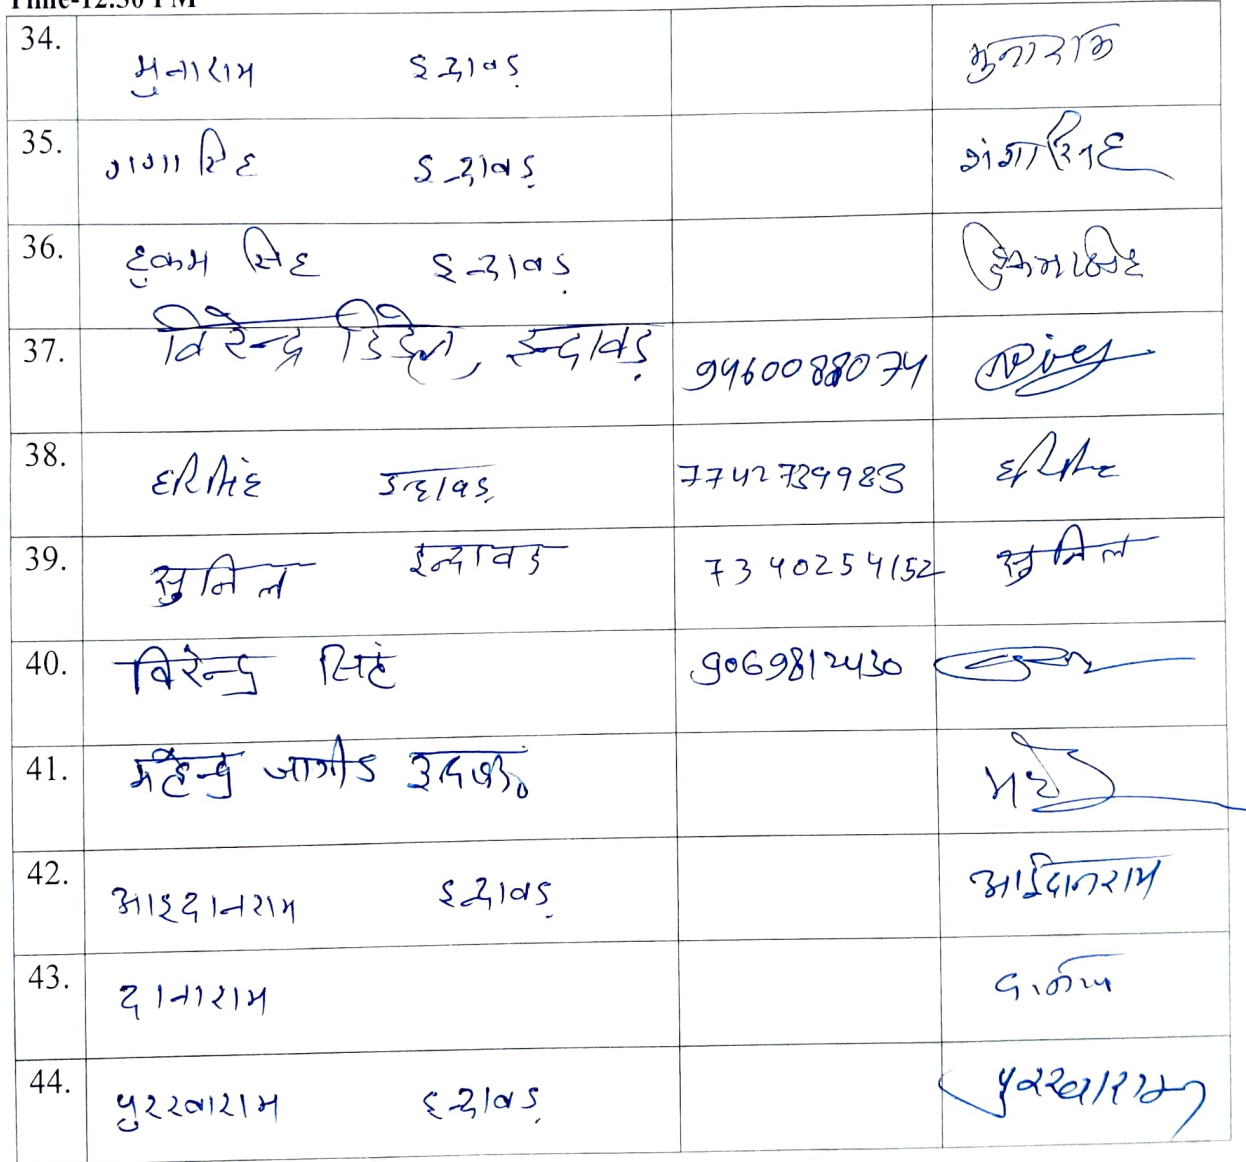 Time-12:30 PM
34. मुनाराम इन्दावड़ मुनाराम
35. गंगा सिंह इन्दावड़ गंगा सिंह
36. हुकम सिंह इन्दावड़ हुकम सिंह
37. विरेन्द्र डिडेल, इन्दावड़ 9460088074
38. हरिसिंह इन्दावड़ 7742739983 हरिसिंह
39. सुनिल इन्दावड 7340254152 सुनिल
40. विरेन्द्र सिहं 9069812430
41. महेन्द्र जागीड
42. आइदानराम इन्दावड़ आईदानराम
43. दानाराम
44. पुरखाराम इन्दावड़ पुरखाराम